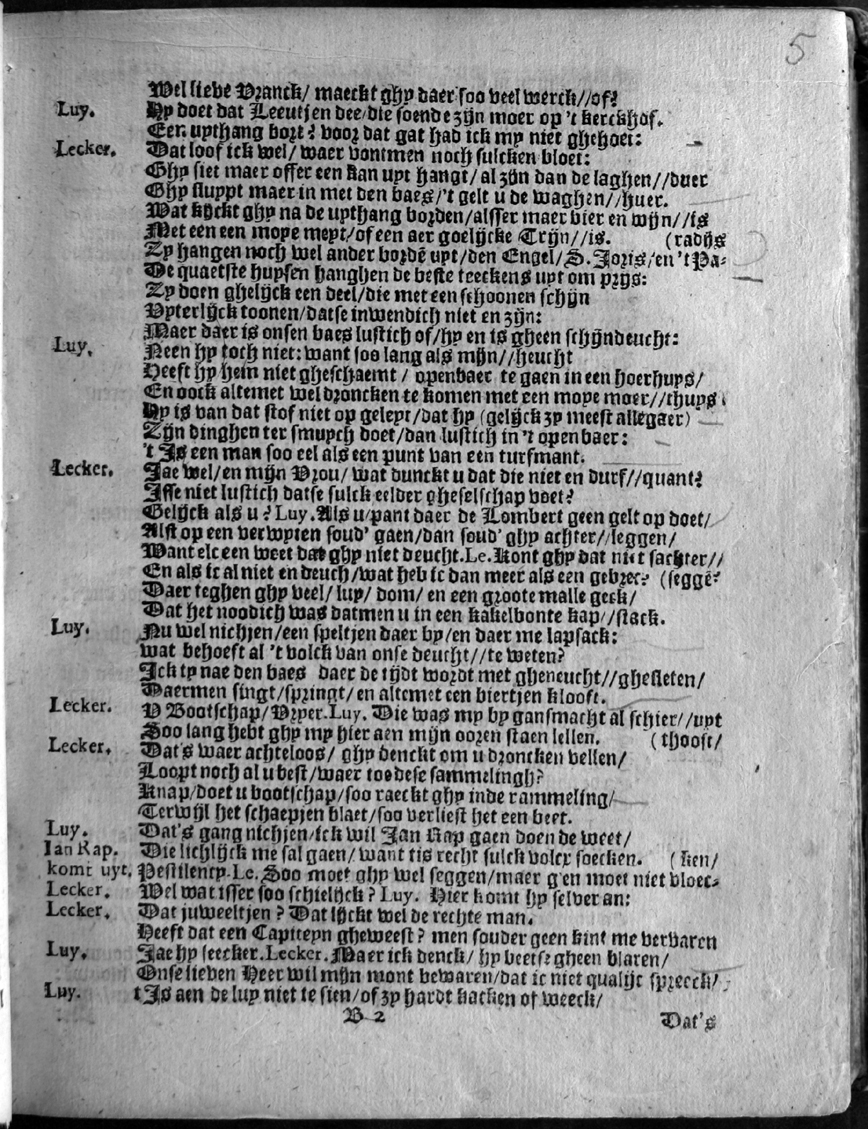 5
Wel lieve Vranck/ maeckt ghy daer soo veel werck//of?
Luy. Hy doet dat Leeutjen dee/die soende zijn moer op 't kerckhof.
Een uythang bort? voor dat gat had ick my niet ghehoet:
Lecker. Dat loof ick wel/ waer vontmen noch sulcken bloet:
Ghy siet maer offer een kan uyt hangt/ al zijn dan de laghen//duer
Ghy sluppt maer in met den baes/'t gelt u de waghen//huer.
Wat kijckt ghy na de uythang borden/alsser maer bier en wijn//is
Met een een moye meyt/of een aer goelijcke Trijn//is. (radijs
Zy hangen noch wel ander bordē uyt/den Engel/S. Joris/en 't Pa-
De quaetste huysen hanghen de beste teeckens uyt om prijs:
Zy doen ghelijck een deel/die met een schoonen schijn
Uyterlijck toonen/datse inwendich niet en zijn:
Maer daer is onsen baes lustich of/hy en is gheen schijndeucht:
Luy. Neen hy toch niet: want soo lang als mijn//heucht
Heeft hy hem niet gheschaemt / openbaer te gaen in een hoerhuys/
En oock altemet wel droncken te komen met een moye moer//thuys.
Hy is van dat stof niet op geleyt/dat hy (gelijck zy meest allegaer)
Zijn dinghen ter smuych doet/dan lustich in 't openbaer:
't Is een man soo eel als een punt van een turfmant.
Lecker. Jae wel/en mijn Vrou/ wat dunckt u dat die niet en durf//quant?
Isse niet lustich datse sulck eelder gheselschap voet?
Gelijck als u? Luy. Als u pant daer de Lombert geen gelt op doet/
Alst op een verwyten soud' gaen/dan soud' ghy achter//leggen/
Want elc een weet dat ghy niet deucht. Le. Kont ghy dat niet sachter//
En als ic al niet en deuch/wat heb ic dan meer als een gebrec? (seggē?
Daer teghen ghy veel/ luy/ dom/ en een groote malle geck/
Dat het noodich was datmen u in een kakelbonte kap//stack.
Luy. Nu wel nichjen/een speltjen daer by/en daer me lapsack:
wat behoeft al 't volck van onse deucht//te weten?
Ick ty nae den baes daer de tijdt wordt met gheneucht//ghesleten/
Daermen singt/springt/ en altemet een biertjen klooft.
Lecker. U Bootschap/Vryer. Luy. Die was my by gansmacht al schier//uyt
Soo lang hebt ghy my hier aen mijn ooren staen lellen. (thooft/
Lecker. Dat's waer achteloos/ ghy denckt om u droncken vellen/
Loopt noch al u best/waer toe dese sammelingh?
Knap/doet u bootschap/soo raeckt ghy inde rammeling/
Terwijl het schaepjen blaet/soo verliest het een beet.
Luy. Dat's gang nichjen/ick wil Jan Rap gaen doen de weet/
Ian Rap. Die lichlijck me sal gaen/ want tis recht sulck volcx soecken. (ken/
komt uyt. Pestilency. Le. Soo moet ghy wel seggen/maer g'en moet niet vloec-
Lecker. Wel wat isser soo schielijck? Luy. Hier komt hy selver an:
Lecker. Dat juweeltjen? Dat lijckt wel de rechte man.
Heeft dat een Capiteyn gheweest? men souder geen kint me vervaren
Luy. Jae hy seecker. Lecker. Maer ick denck/ hy beetse gheen blaren/
Onse lieven Heer wil mijn mont bewaren/dat ic niet qualijc spreeck/
Luy. t Is aen de luy niet te sien/of zy hardt kacken of weeck/
B 2
Dat's